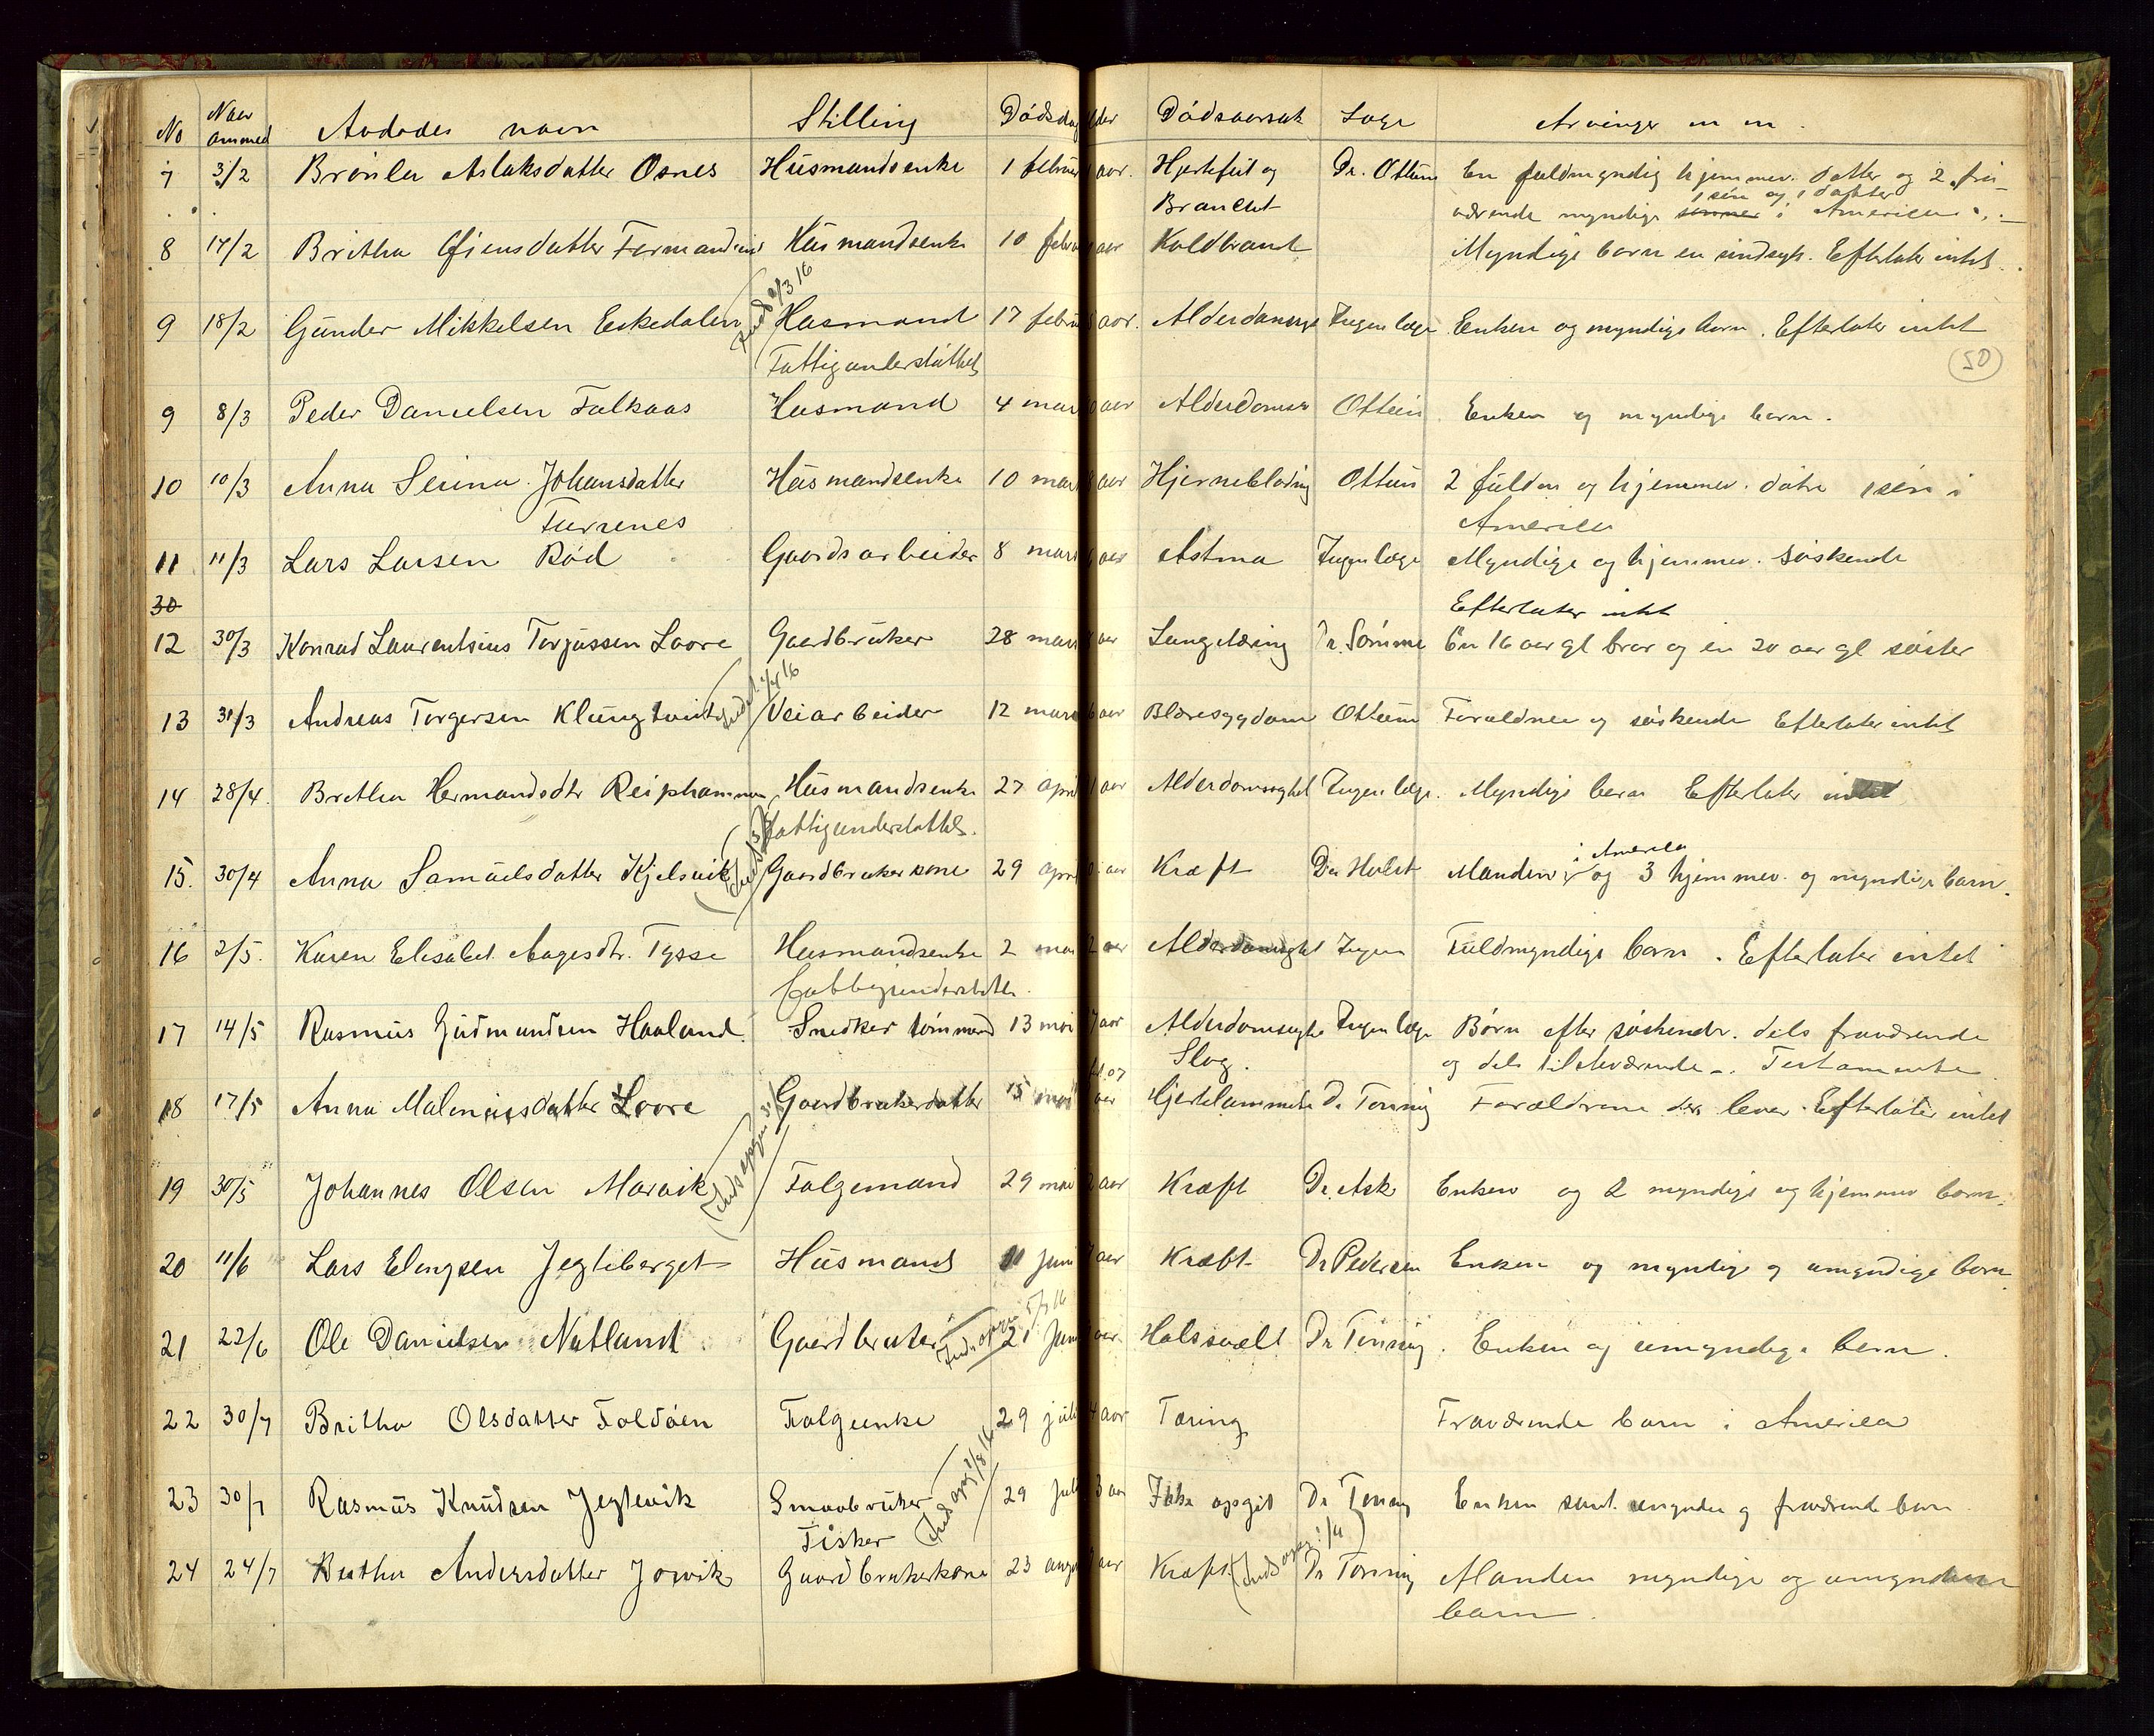 No Naar anmed Avdødes navn Stilling Dødsdag Alder Dødsaarsak Læge Arvinger m m.
7 3/2 Brønla Aslaksdatter Osnes Husmandsenke 1 februar aar. Hjertefeil og Dr. Ottum En fuldmyndig hjemmev. datter og 2 fra-
Bronchit værende myndige sønner 1 søn og 1 datter i America
8 14/2 Britha Eiensdatter Husmandsenke 10 februar aar Koldbrand Myndige barn en sindsyk. Efterlater intet.
9 18/2 Gunder Mikkelsen Eskedalen Husmand 17 februar aar. Alderdomssv Ingen læge Enken og myndige barn. Efterlater intet
Fattigunderstøttet
50
9 8/3 Peder Danielsen Falkaas Husmand 4 mars aar Alderdomssv Ottum Enken og myndige barn.
10 10/3 Anna Serina Johansdatter Husmandsenke 10 mars aar Hjerneblødning Ottum 2 fuldm og hjemmev. døtre 1 søn i
Furrenes America
11 11/3 Lars Larsen Rød Gaardsarbeider 8 mars aar Astma Ingen læge Myndige og hjemmev. søskende
30 Efterlater intet
12 30/3 Konrad Laurentsius Torjussen Loore Gaardbruker 28 mars aar Lungetæring Dr. Sømme En 16 aar gl bror og en 20 aar gl søster
13 31/3 Andreas Torgersen Klungtveit Veiarbeider 12 mars aar Blæresygdom Ottum Forældrene og søskende Efterlater intet
14 28/4. Britha Hermandsdtr Reiphammer Husmandsenke 27 april 1 aar Alderdomssvghet Ingen læge. Myndige barn Efterlater intet
Fattigunderstøttet.
15. 30/4 Anna Samuelsdatter Kjelsvik Gaardbrukerkone 29 april aar Kræft Dr Holst Manden i America og 3 hjemmev. og myndige barn.
16 2/5. Karen Elisabet Aagesdtr. Tysse Husmandsenke 2 mai 2 aar Alderdomsvghet Ingen Fuldmyndige barn. Efterlater intet
fattigunderstøttet.
17 14/5 Rasmus Gudmundsen Haaland. Snedker tømmerm 13 mai 7 aar Alderdomsvghet Ingen læge Børn efter søskende. dels fraværende
Slag. og dels tilstedværende -. Testamente.
18 17/5 Anna Maleniusdatter Loore Gaardbrukerdatter 15 mai aar Hjertelammelse Dr Tønning Forældrene der lever. Efterlater intet
19 30/5 Johannes Olsen Marvik Folgemand 29 mai 2 aar Kræft Dr. Ask Enken og 2 myndige og hjemmev barn.
20 11/6 Lars Elingsen Jegteberget Husmand 11 juni aar Kræft Dr Pedersen Enken og myndige og umyndige barn
21 22/6 Ole Danielsen Natland Gaardbruker 21 juni aar. Halssvælt Dr Tønning. Enken og umyndige barn.
22 30/7 Britha Olsdatter Foldøen Folgeenke 29 juli 4 aar Tæring Fraværende barn i America
23 30/7 Rasmus Knudsen Jegtevik Smaabruker 29 juli 3 aar Ikke opgit Dr Tønning Enken samt umyndn og fraværende barn
Fisker
24 24/7 Bertha Andersdatter Jorvik Gaardbrukerkone 23 august aar Kræft Dr Tønning Manden myndige og umyndige
barn.